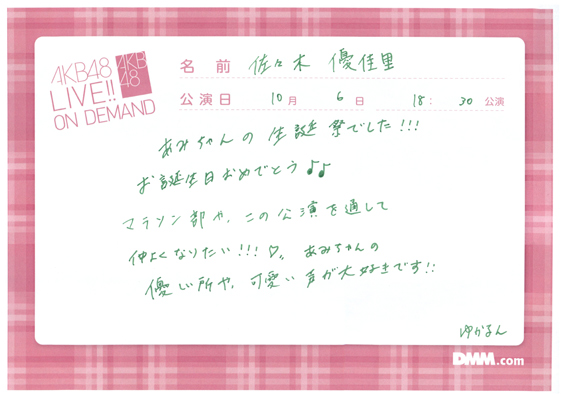 AKB48
LIVE!!
ON DEMAND
AKB
48
名前 佐々木 優佳里
公演日 10月 6日 18:30公演
あみちゃんの 生誕祭でした!!!
お誕生日おめでとう♪♪
マラソン部や、この公演を通して
仲よくなりたい!!!♡〃 あみちゃんの
優しい所や、可愛い声が大好きです!!
ゆかるん
DMM.com